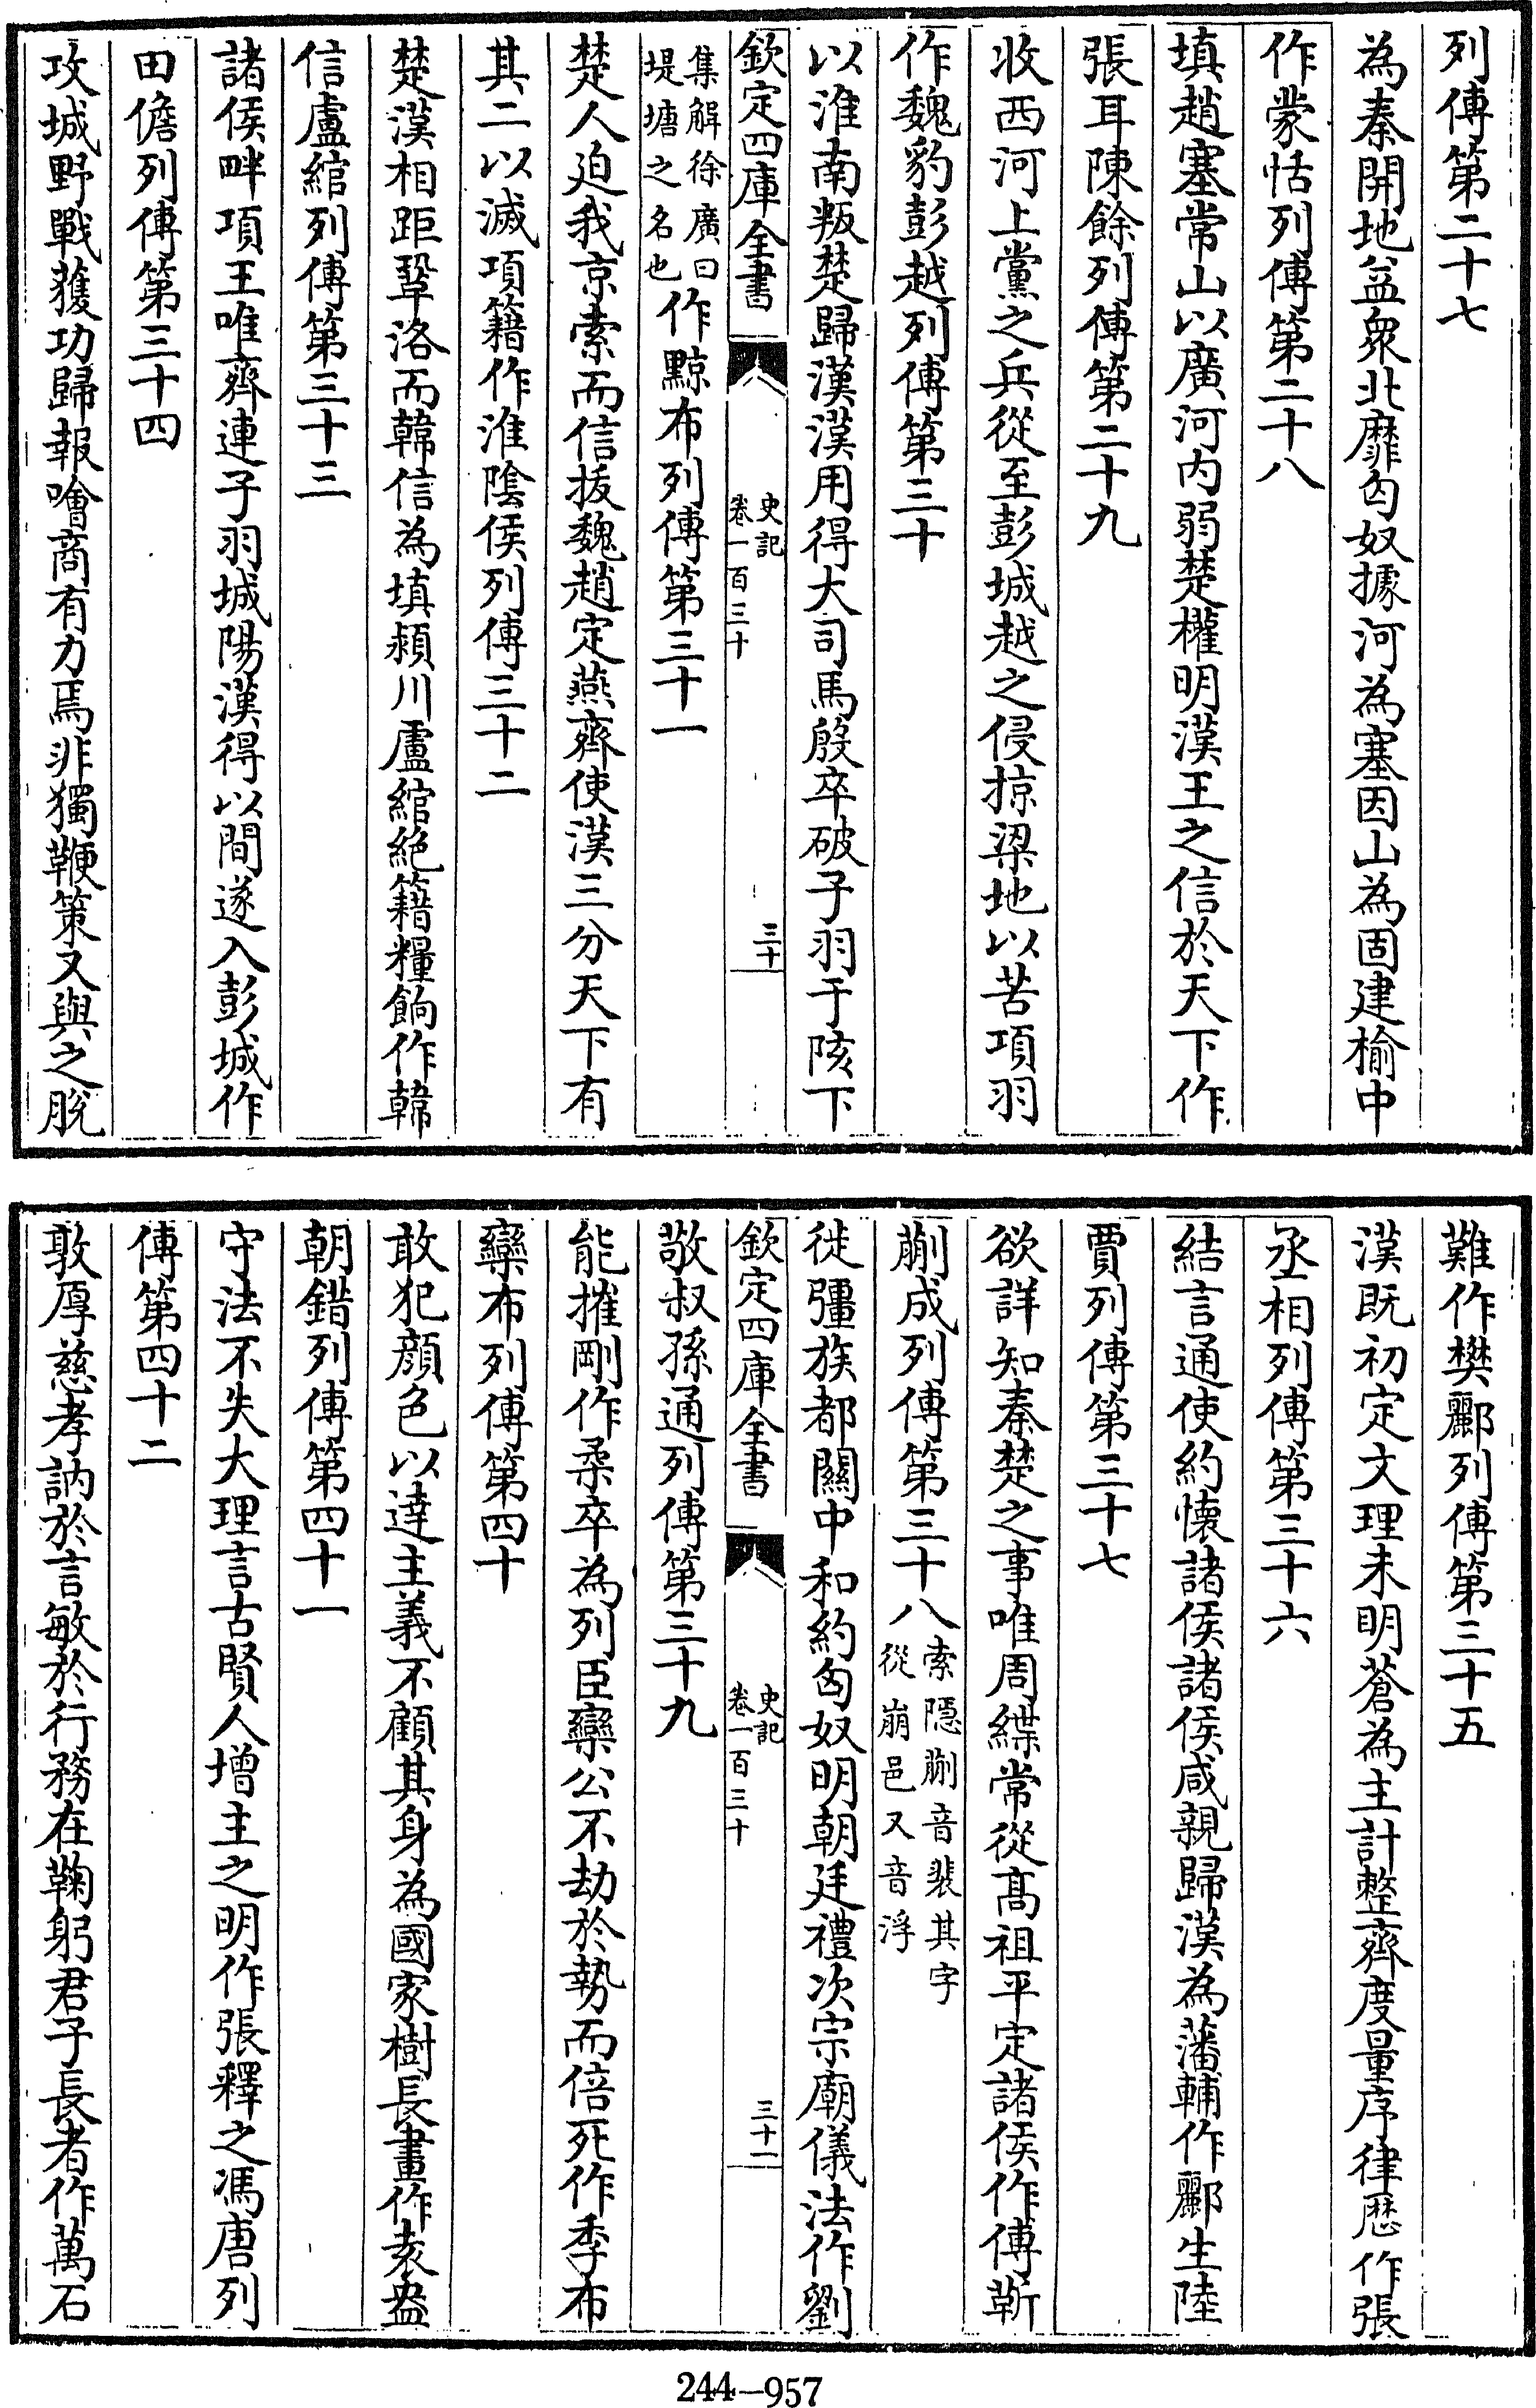 列傳第二十七
為秦開地益衆北靡匈奴據河為塞因山為固建榆中
作蒙恬列傳第二十八
填趙塞常山以廣河内弱楚權明漢王之信於天下作
張耳陳餘列傳第二十九
收西河上黨之兵從至彭城越之侵掠梁地以苦項羽
作魏豹彭越列傳第三十
以淮南叛楚歸漢漢用得大司馬殷卒破子羽于陔下
欽定四庫全書
史記
卷一百三十
三十
集解徐廣曰
堤塘之名也
作黥布列傳第三十一
楚人迫我京索而信拔魏趙定燕齊使漢三分天下有
其二以滅項籍作淮陰侯列傳三十二
楚漢相距鞏洛而韓信為填潁川盧綰絶籍糧餉作韓
信盧綰列傳第三十三
諸侯畔項王唯齊連子羽城陽漢得以間遂入彭城作
田儋列傳第三十四
攻城野戰獲功歸報噲商有力焉非獨鞭策又與之脫
難作樊酈列傳第三十五
漢既初定文理未明蒼為主計整齊度量序律厯作張
丞相列傳第三十六
結言通使約懷諸侯諸侯咸親歸漢為藩輔作酈生陸
賈列傳第三十七
欲詳知秦楚之事唯周緤常從髙祖平定諸侯作傅靳
蒯成列傳第三十八
索隱蒯音裴其字
從崩邑又音浮
徙彊族都關中和約匈奴明朝廷禮次宗廟儀法作劉
欽定四庫全書
史記
卷一百三十
三十一
敬叔孫通列傳第三十九
能摧剛作柔卒為列臣欒公不劫於勢而倍死作季布
欒布列傳第四十
敢犯顔色以達主義不顧其身為國家樹長畫作袁盎
朝錯列傳第四十一
守法不失大理言古賢人增主之明作張釋之馮唐列
傳第四十二
敦厚慈孝訥於言敏於行務在鞠躬君子長者作萬石
244-957